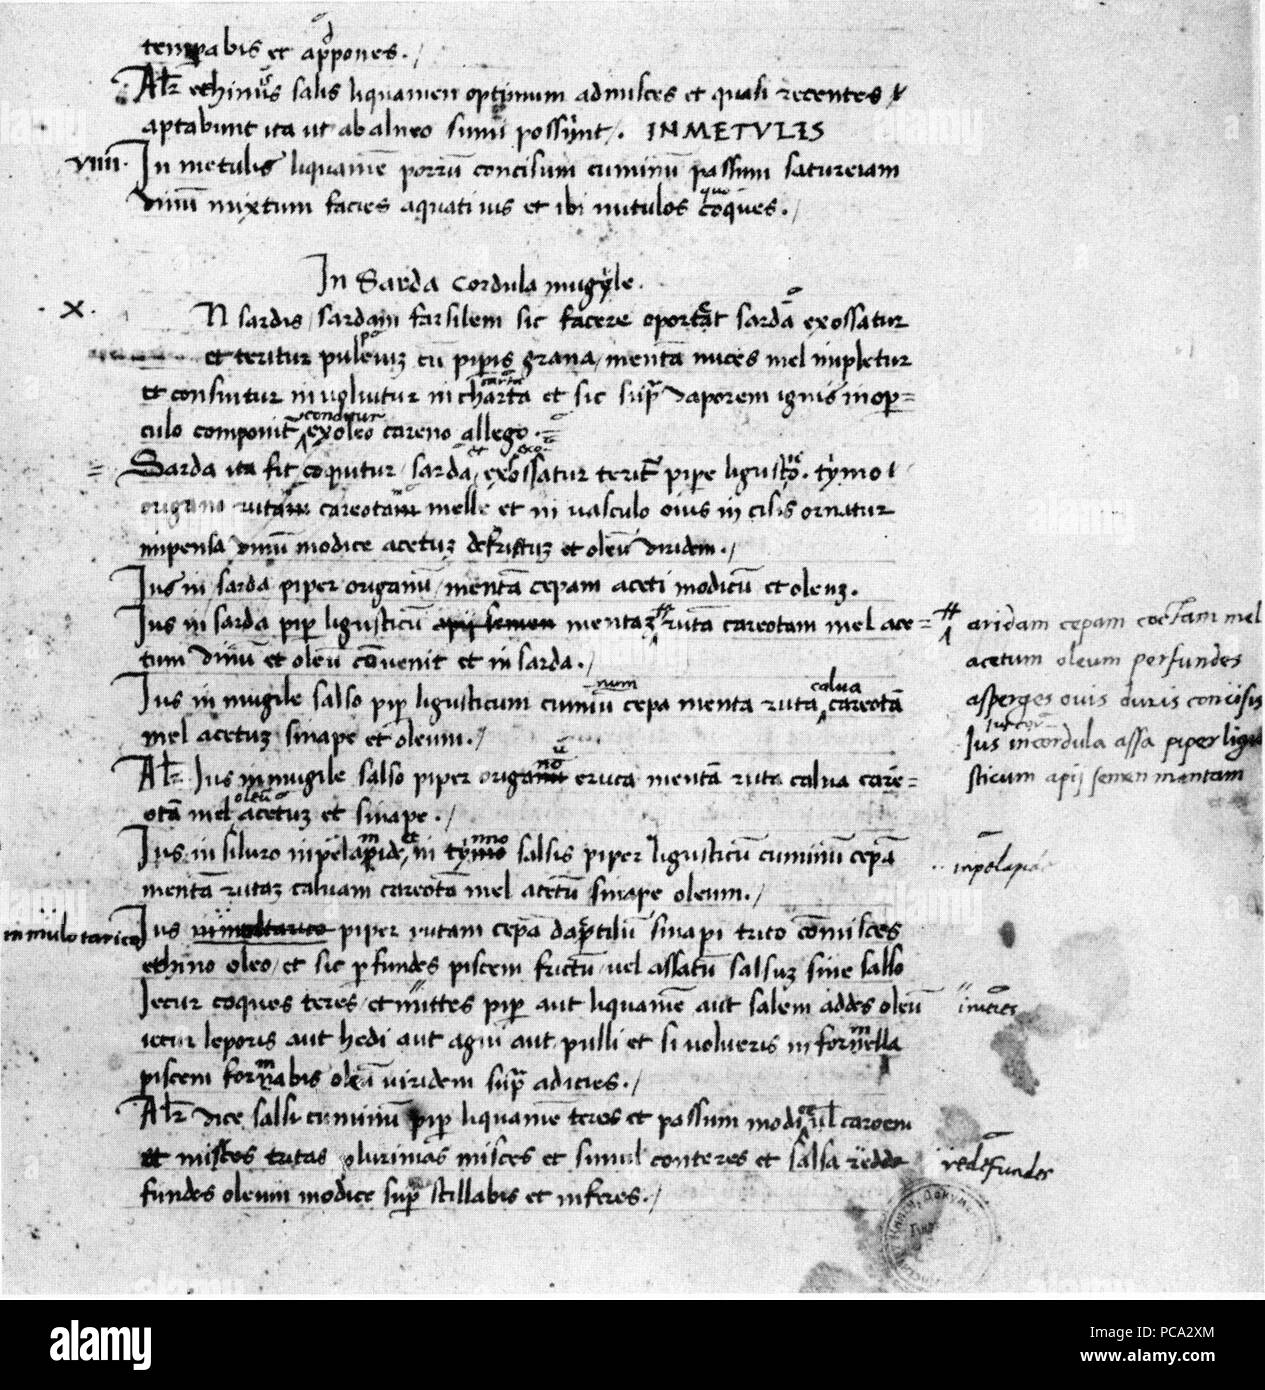 tempabis et appones.
Alr ethinus salis liquamen optimum admisces et quasi recentes
aptabunt ita ut abalneo sumi possint. IN METVLIS
VIIII. In metulis liquamē porrū concisum cuminū passum satureiam
vinū mixtum facies aquati ius et ibi mitulos coques.
In Sarda cordula mugyle.
.X. N sardis sardam farsilem sic facere oportet sarda exossatur
et teritur puleiuʒ cū piꝑis grana mentā nuces mel impletur
et consuitur involuitur in charta et sic suꝑ vaporem ignis in oper=
culo componit conditur ex oleo careno allego
Sarda ita fit coquitur sarda et exossatur terit̄ piꝑe ligustico tymo
origano ruta careota melle et in vasculo ovis incisis ornatur
impensa vinū modice acetuʒ defrituʒ et oleū viridem.
Ius in sarda piper origanū mentā cepam aceti modicū et oleuʒ.
Ius in sarda piꝑ ligusticū apii semen mentaʒ rutā careotam mel ace=
tum vinū et oleū convenit et in sarda.
Ius in mugile salso piꝑ ligusticum cuminum cepa menta ruta calva careotā
mel acetuʒ sinape et oleum.
Alr Ius in mugile salso piper origanū eruca mentā ruta calva care=
otā mel oleū acetuʒ et sinape.
Ius in siluro in pelamide et in tymno salsis piper ligusticū cuminū cepā
mentā rutaʒ calvam careotā mel acetū sinape oleum.
Ius piper rutam cepā daptilū sinapi trito cōmisces
ethino oleo et sic ꝑfundes piscem frictū vel assatū salsuʒ sine salso
Iecur coques teres et mittes piꝑ aut liquamē aut salem addes oleū
iecur leporis aut hedi aut agni aut pulli et si volueris in formella
piscem formabis oleū viridem suꝑ adicies.
Alr vice salsi cuminū piꝑ liquamē teres et passum modice vl caroenu
et misces tritas plurimas misces et simul conteres et salsa redde
fundes oleum modice suꝑ stillabis et inferes.
aridam cepam coctam mel
acetum oleum perfundes
asperges ovis duris concisis
Ius in cordula assa piper ligu
sticum apij semen mentam
in mulo tarico
redefundes
alamy
Image ID: PCA2XM
www.alamy.com